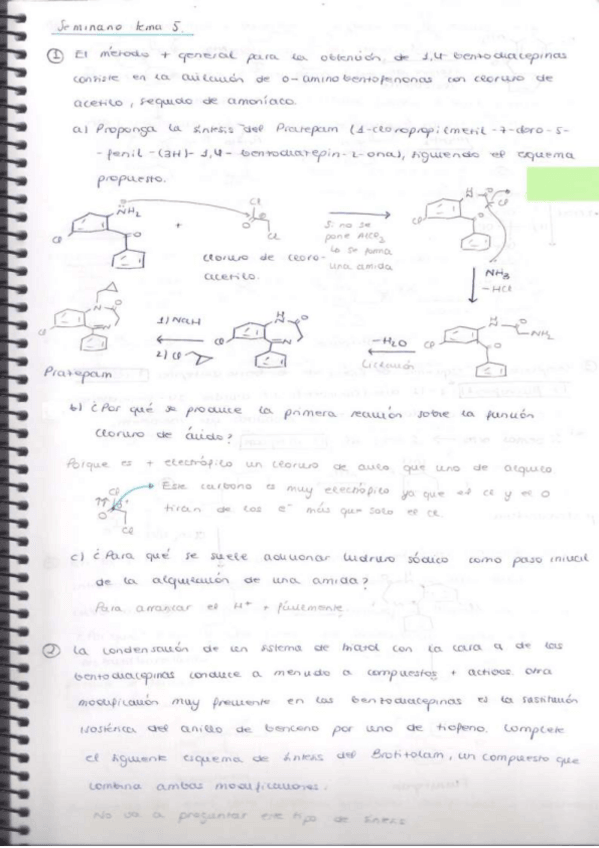 Seminario tema 5.
① El método + general para la obtención de 1,4-benzodiacepinas
consiste en la acilación de o-aminobenzofenonas con cloruro de
acetilo, seguido de amoníaco.
a) Proponga la síntesis del Prazepam (1-cloropropilmetil-7-cloro-5-
-fenil-(3H)-1,4-benzodiazepin-2-ona), siguiendo el esquema
propuesto.
NH2
O
Cl
+
Cl
O
Cl
cloruro de cloro-
acetilo.
Si no se
pone AlCl3
lo se forma
una amida
H
N
O
Cl
Cl
O
NH3
-HCl
H
N
O
NH2
Cl
O
-H2O
Ciclación
H
N
O
Cl
N
1) NaH
2) Cl
N
O
Cl
N
Prazepam
b) ¿Por qué se produce la primera reacción sobre la función
cloruro de ácido?
Porque es + electrófilo un cloruro de acilo que uno de alquilo
Cl
O
Cl
Ese carbono es muy electrófilo ya que el Cl y el O
tiran de los e- más que solo el Cl.
c) ¿Para qué se suele adicionar hidruro sódico como paso inicial
de la alquilación de una amida?
Para arrancar el H+ + fácilmente.
② La condensación de un sistema de triazol con la cara a de las
benzodiacepinas conduce a menudo a compuestos + activos. Otra
modificación muy frecuente en las benzodiacepinas es la sustitución
isostérica del anillo de benceno por uno de tiofeno. Complete
el siguiente esquema de síntesis del Brotizolam, un compuesto que
combina ambas modificaciones.
No va a preguntar este tipo de síntesis